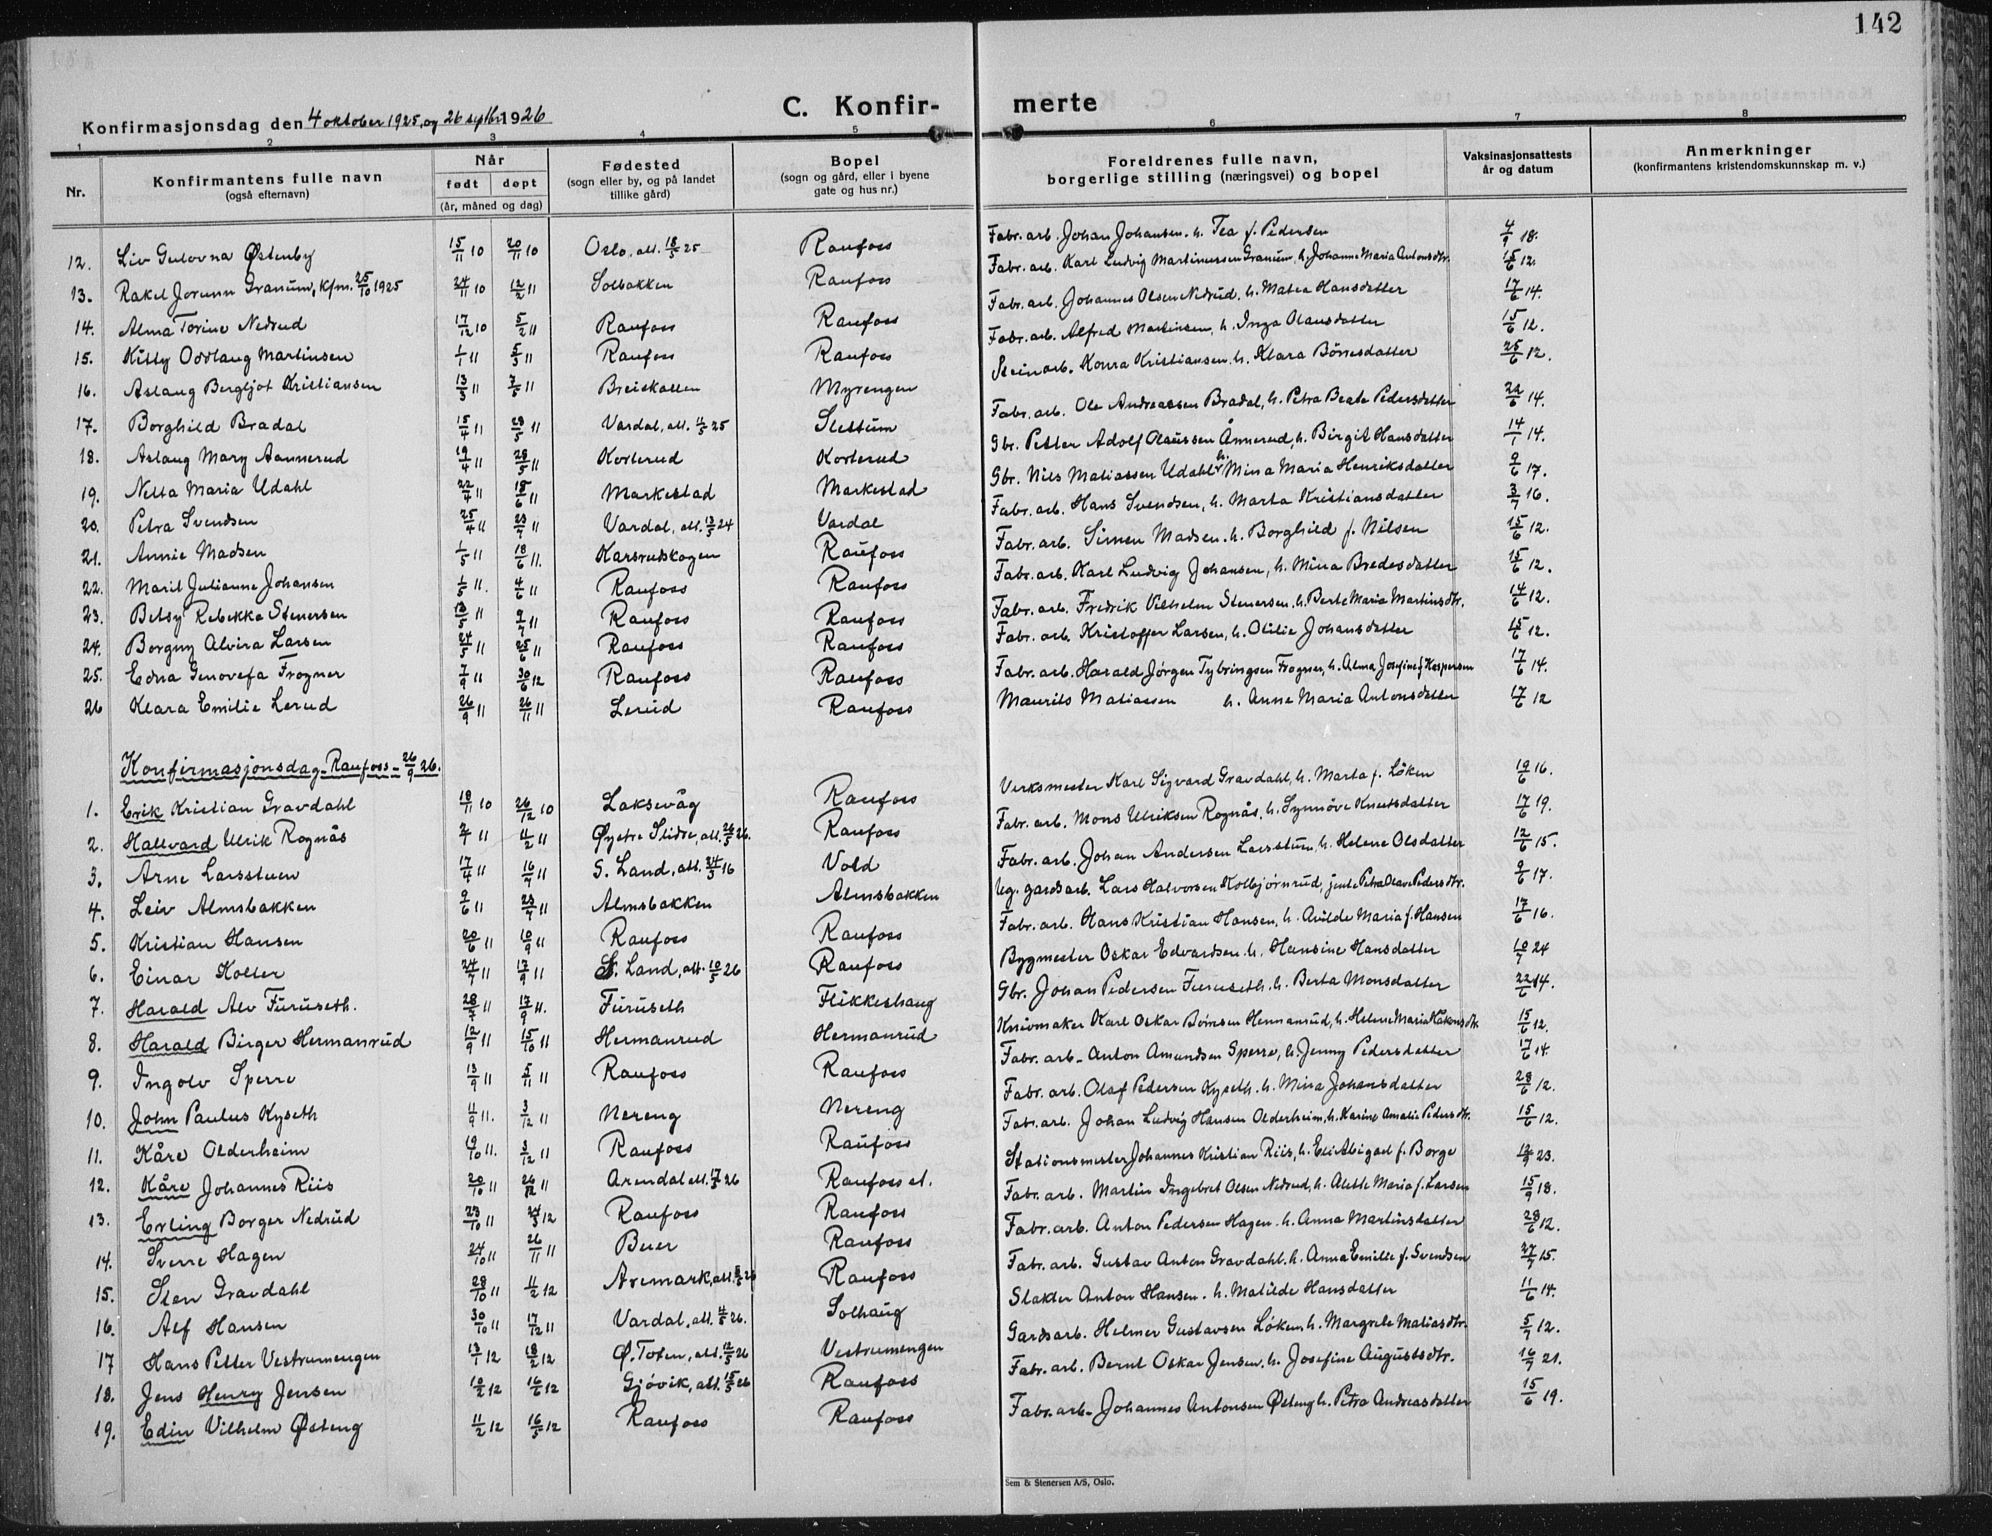 142
C. Konfir-
merte
Konfirmasjonsdag den 4 oktober 1925, og 26 septbr. 1926
1 2 3 4 5 6 7 8
Nr. Konfirmantens fulle navn (også efternavn) Når født døpt (år, måned og dag) Fødested (sogn eller by, og på landet tillike gård) Bopel (sogn og gård, eller i byene gate og hus nr.) Foreldrenes fulle navn, borgerlige stilling (næringsvei) og bopel Vaksinasjonsattests år og datum Anmerkninger (konfirmantens kristendomskunnskap m. v.)
12. Liv Gulovna Østenby 15/11 10 20/11 10 Oslo, att. 18/5 25 Raufoss Fabr. arb. Johan Johansen. h. Tea f. Pedersen 4/9 18.
13. Rakel Jorunn Granum, kfm. 25/10 1925 24/11 10 12/2 11 Solbakken Raufoss Fabr. arb. Karl Ludvig Martinussen Granum, h. Johanne Maria Antonsdtr. 15/6 12.
14. Alma Torine Nedrud 17/12 10 5/2 11 Raufoss Raufoss Fabr. arb. Johannes Olsen Nedrud, h. Matea Hansdatter 17/6 14.
15. Kitty Oddlaug Martinsen 1/1 11 5/3 11 Raufoss Raufoss Fabr. arb. Alfred Martinsen, h. Inga Olausdatter 15/6 12.
16. Aslaug Bergljot Kristiansen 13/3 11 7/5 11 Breiskallen Myrengen Steinarb. Konra Kristiansen. h. Klara Börresdatter 25/6 12.
17. Borghild Bradal 15/4 11 28/5 11 Vardal, att. 4/5 25 Slettum Fabr. arb. Ole Andreassen Bradal, h. Petra Beate Pedersdatter 22/6 14.
18. Aslaug Mary Aannerud 19/4 11 28/5 11 Korterud Korterud Gbr. Petter Adolf Olaussen Ånnerud, h. Birgit Hansdatter 14/1 14.
19. Nelta Maria Udahl 22/4 11 18/6 11 Markestad Markestad Gbr. Nils Matiassen Udahl h. Mina Maria Henriksdatter 9/6 17.
20. Petra Svendsen 25/4 11 23/7 11 Vardal, att. 13/5 24 Vardal Fabr. arb. Hans Svendsen, h. Marta Kristiansdatter 3/7 16.
21. Annie Madsen 1/5 11 18/6 11. Karsrudskogen Raufoss Fabr. arb. Simen Madsen. h. Borghild f. Nilsen 15/6 12.
22. Marit Julianne Johansen 1/5 11. 4/6 11 Raufoss Raufoss Fabr. arb. Karl Ludvig Johansen, h. Mina Bredesdatter 15/6 12.
23. Betsy Rebekka Stenersen 13/5 11 9/7 11 Raufoss Raufoss Fabr. arb. Fredrik Vilhelm Stenersen. h. Berte Maria Martinsdtr. 14/6 12.
24. Borgny Alvira Larsen 24/5 11 25/6 11 Raufoss Raufoss Fabr. arb. Kristoffer Larsen, h. Otilie Johansdatter 15/6 12.
25. Edna Genovefa Frogner 7/9 11 30/6 12 Raufoss Raufoss Fabr. arb. Harald Jørgen Tybringsen Frogner, h. Alma Josefine f. Kaspersen 17/6 14.
26 Klara Emilie Lerud 26/9 11 26/11 11 Lerud Raufoss Maurits Matiassen h. Anne Maria Antonsdatter 17/6 12
Konfirmasjonsdag - Raufoss - 26/9 26.
1. Erik Kristian Gravdahl 18/11 10 26/12 10 Laksevåg Raufoss Verksmester Karl Sigvard Gravdahl, h. Marta f. Löken 19/6 16.
2. Hallvard Ulrik Rognås 2/1 11 4/2 11 Øystre Slidre, att. 26/5 26. Raufoss Fabr. arb. Mons Ulriksen Rognås, h. Synnöve Knutsdatter 17/6 19.
3. Arne Larsstuen 17/4 11 16/7 11 S. Land, att. 24/5 16 Vold Fabr. arb. Johan Andersen Larsstuen h. Helene Olsdatter 12/6 15.
4. Leiv Almsbakken 9/6 11 23/7 11 Almsbakken Almsbakken Ug. gardsarb. Lars Halvorsen Kolbjørnrud, jente Petra Olave Pedersdtr. 9/6 17.
5. Kristian Hansen 20/6 11 10/9 11 Raufoss Raufoss Fabr. arb. Hans Kristian Hansen, h. Avilde Maria f. Hansen 17/6 16.
6. Einar Kolter 24/7 11 17/9 11 S. Land, att. 10/5 26 Raufoss Bygmester Oskar Edvardsen. h. Hansine Hansdatter 10/7 24
7. Harald Alv Furuseth. 28/7 11 17/9 11. Furuseth Flikkeshaug Gbr. Johan Pedersen Furuseth. h. Berta Monsdatter 22/6 14.
8. Harald Birger Hermanrud 12/9 11 15/10 11 Hermanrud Hermanrud Knivmaker Karl Oskar Børresen Hermanrud, h. Helene Maria Håkonsdtr. 15/6 12.
9. Ingolv Sperre 13/9 11 5/11 11 Raufoss Raufoss Fabr. arb. Anton Amundsen Sperre, h. Jenny Pedersdatter 17/6 14.
10. John Paulus Kyseth 11/9 11. 3/12 11 Nereng Nereng Fabr. arb. Olaf Pedersen Kyseth. h. Mina Johansdatter 28/6 12.
11. Kåre Olderheim 19/10 11. 3/12 11 Raufoss Raufoss Fabr. arb. Johan Ludvig Hansen Olderheim, h. Karine Amalie Pedersdtr. 15/6 12.
12. Kåre Johannes Riis 20/10 11 26/12 11 Arendal att. 17/5 26 Raufoss st. Stationsmester Johannes Kristian Riis, h. Eli Abigael f. Borge 23.
13. Erling Borger Nedrud 23/10 11 24/3 12 Raufoss Raufoss Fabr. arb. Martin Ingebret Olsen Nedrud, h. Alette Maria f. Larsen 15/9 18.
14. Sverre Hagen 24/10 11 26/11 11 Buer Raufoss Fabr. arb. Anton Pedersen Hagen. h. Anna Martinsdatter 28/6 12.
15. Sten Gravdahl 28/10 11 11/2 12 Aremark, att. 8/5 26 Raufoss Fabr. arb. Gustav Anton Gravdahl. h. Anna Emilie f. Svendsen 27/7 15.
16. Alf Hansen 30/10 11 17/12 11 Vardal, att. 4/5 26. Solhaug Slakter Anton Hansen. h. Matilde Hansdatter 11/6 14.
17 Hans Petter Vestrumengen 13/1 12 18/2 12 Ø. Toten, att. 12/5 26 Vestrumengen Gardsarb. Helmer Gustavsen Løken, h. Margrete Matiasdtr. 5/7 12.
18. Jens Henry Jensen 10/2 12 16/6 12 Gjövik, att. 15/5 26 Raufoss Fabr. arb. Bernt Oskar Jensen, h. Josefine Augustsdtr. 16/7 21.
19. Edin Vilhelm Østeng 11/2 12 16/5 12 Raufoss Raufoss Fabr. arb. Johannes Antonsen Østeng h. Petra Andreasdatter 15/6 19.
Sem & Stenersen A/S, Oslo.